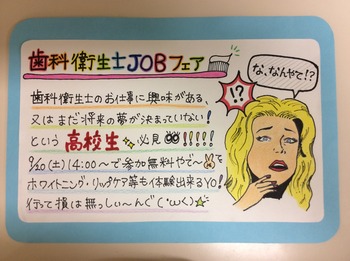 歯科衛生士JOBフェア
な、なんやて!?
!?
歯科衛生士のお仕事に興味がある、
又はまだ将来の夢が決まっていない!
という高校生必見!!!!!
9/20(土)14:00〜で参加無料やで〜
ホワイトニング・リップケア等も体験出来るYO!
行って損は無っしぃ〜んぐ(･ω<)